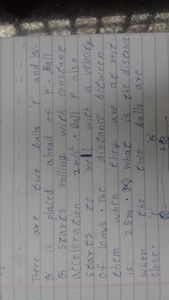 There are two balls 'p' and 'q'.
q is placed ahead of 'p'. Ball
q starts rolling with constant
acceleration 2m/s². Ball P also
starts to roll with a velocity
of 10m/s. The distance between
them when they are at rest
is 25m. what is the distance
when the two balls are
close.